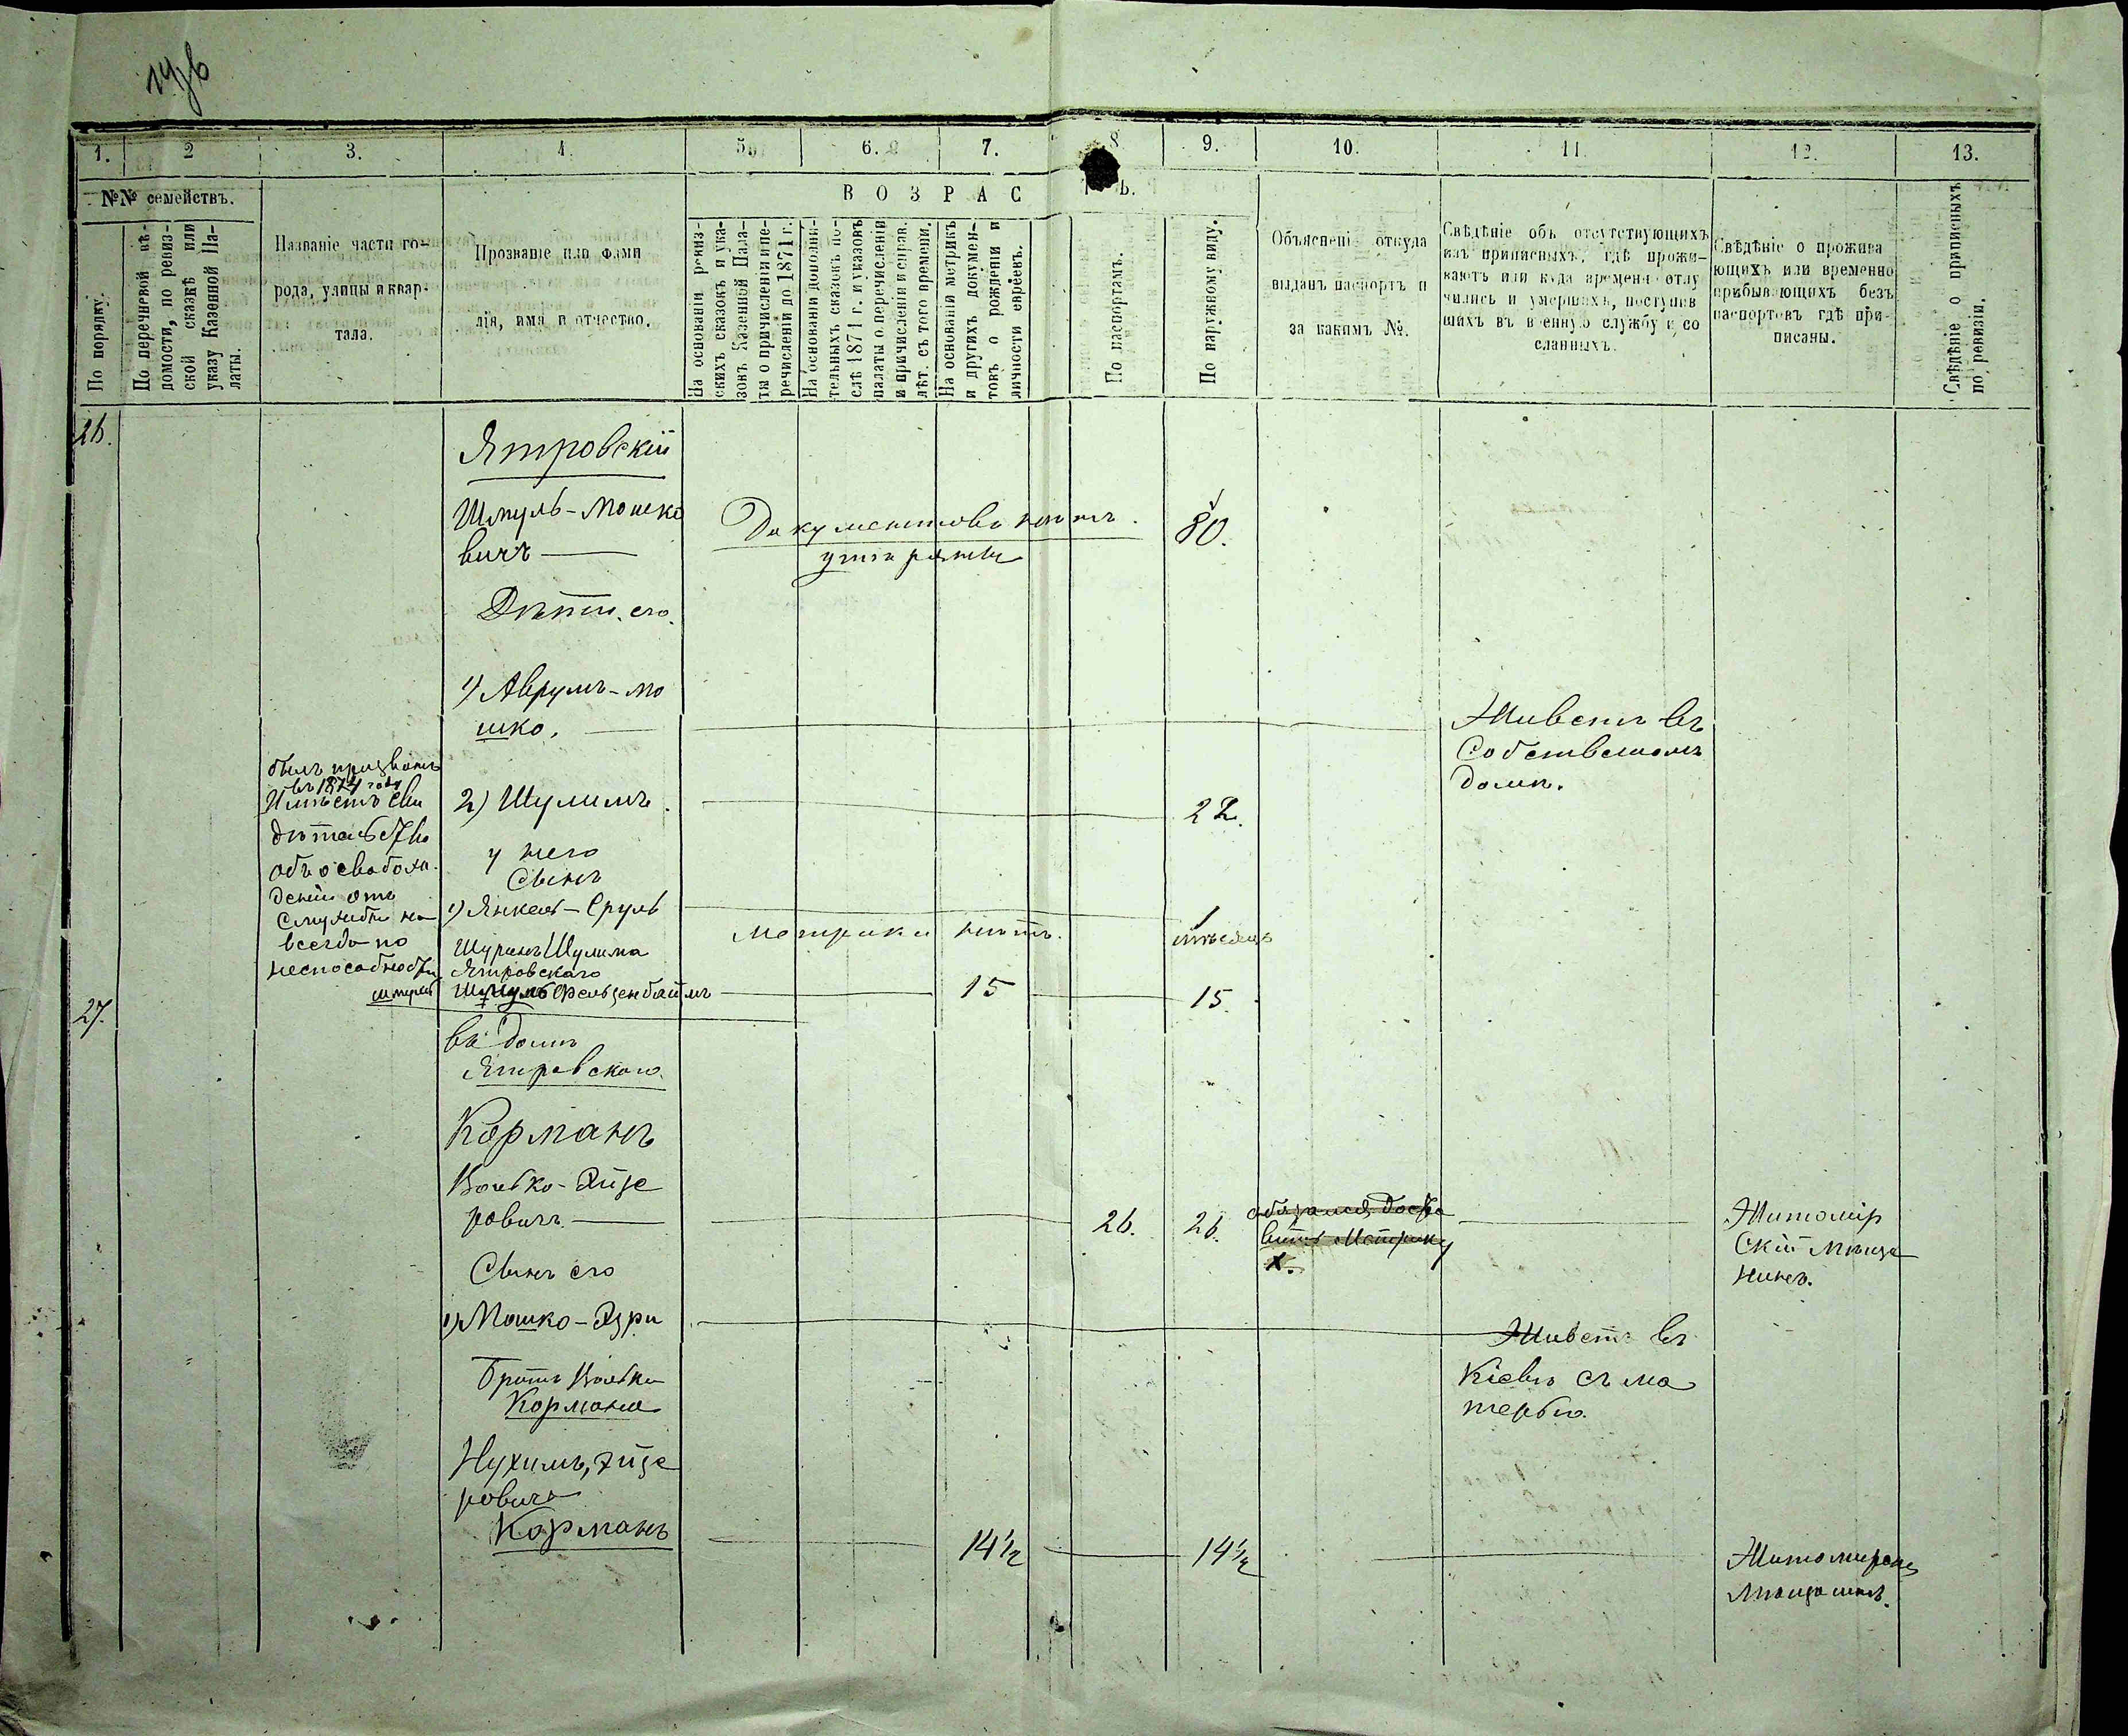 1.
2
3.
4.
5
6.
7.
8
9.
10.
11.
12.
13.
№№ семействъ.
ВОЗРАС
Ъ.
По порядку.
По перечневой вѣ-
домости, по ревиз-
ской сказкѣ или
указу Казенной Па-
латы.
Названіе части го-
рода, улицы и квар-
тала.
Прозваніе или фами
лія, имя и отчество.
На основаніи ревиз-
скихъ сказокъ и ука-
зовъ Казенной Пала-
ты о причисленіи и пе-
речисленіи до 1871 г.
На основаніи дополни-
тельныхъ сказокъ по-
слѣ 1871 г. и указовъ
палаты о перечисленіи
и причисленіи и справ.
лѣт. съ того времени.
На основаніи метрикъ
и другихъ докумен-
товъ о рожденіи и
личности евреевъ.
По паспортамъ.
По наружному виду.
Объясненi откуда
выданъ паспортъ и
за какимъ №.
Свѣдѣніе объ отсутствующихъ
изъ приписныхъ, гдѣ прожи-
ваютъ или куда времени отлу
чились и умершихъ, поступив
шихъ въ военную службу и со
сланныхъ.
Свѣдѣніе о прожива
ющихъ или временно
прибывающихъ безъ
паспортовъ гдѣ при-
писаны.
Свѣдѣніе о приписныхъ
по ревизіи.
26.
Ятровскій
Шмуль-Мошко
вичъ
Документовъ нѣтъ.
утеряны
80.
Дѣти его.
1) Аврумъ-Мо
шко.
Живетъ въ
Собственномъ
домѣ.
былъ призванъ
въ 1874 году
Имѣетъ сви
дѣтельство
объ освобож
деніи отъ
службы на
всегда по
неспособности
2) Шулимъ.
22.
у него
Сынъ
1) Янкель-Сруль
Метрики нѣтъ.
1
мѣсяцъ
Шуринъ Шулима
Ятровскаго
Фельзенбаумъ
15
15
27.
въ домѣ
Ятровскаго.
Корманъ
Волько-Эйзе
ровичъ.
26.
26.
обязался доста
вить Метрику
х.
Житомір
скій мѣща
нинъ.
Сынъ его
1) Мошко-Азри
Живетъ въ
Кіевѣ съ ма
терью.
Братъ Волька
Кормана
Нухимъ, Эйзе
ровичъ
Корманъ
14½
14½
Житомирскій
мѣщанинъ.